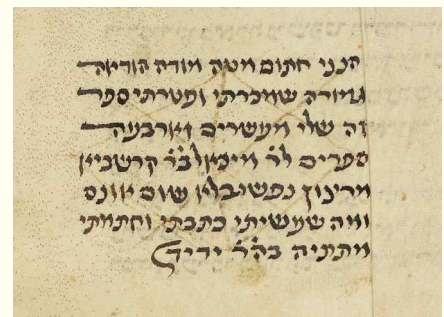 הנני חתום מטה מודה הודיאה
גמורה שמכרתי ופטרתי ספר
זה שלי מעשרים וארבעה
ספרים לר' מיכאל בר'
מרצון נפשי ובלא שום אונס
ומה שעשיתי כתבתי וחתמתי
מתתיה בה"ר ידיד